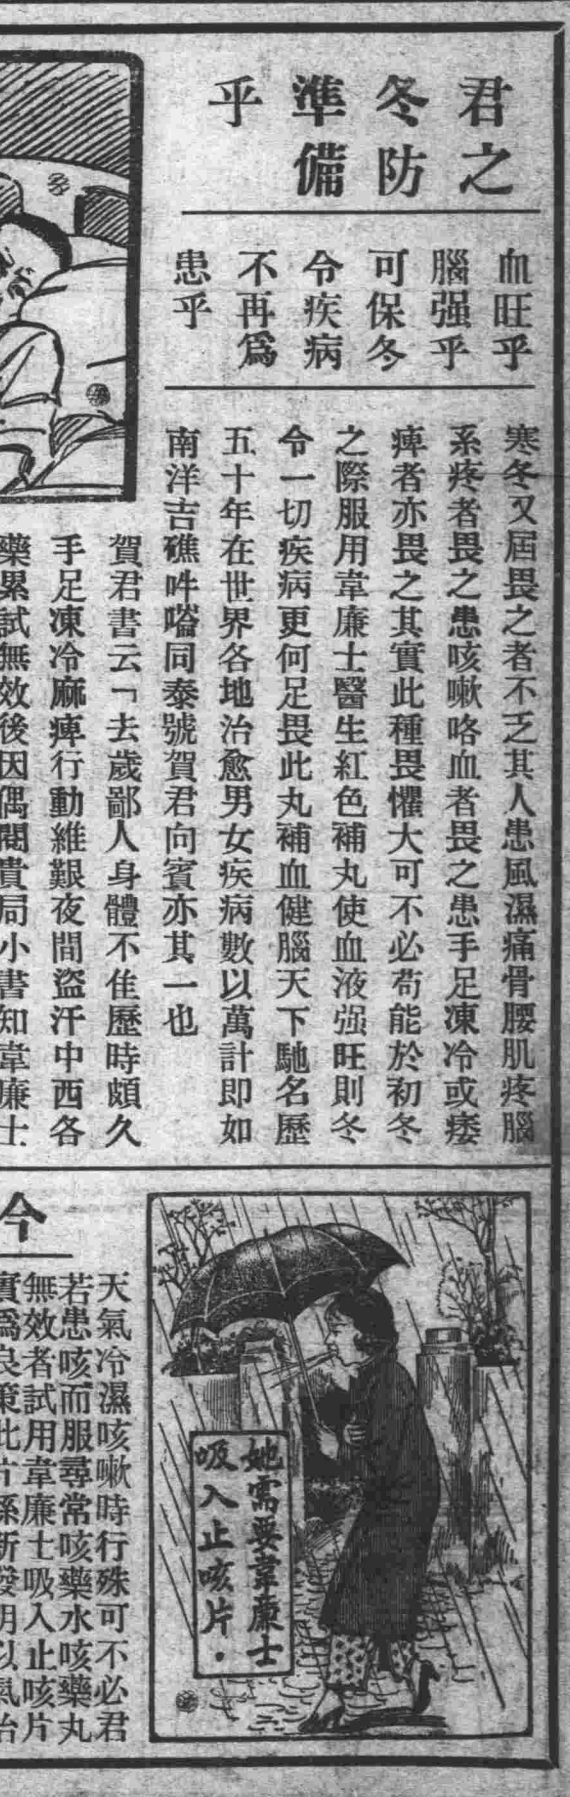 君之
冬防
準備
乎
血旺乎
腦强乎
可保冬
令疾病
不再爲
患乎
寒冬又屆畏之者不乏其人患風濕痛骨腰肌疼腦
系疼者畏之患咳嗽咯血者畏之患手足凍冷或痿
痺者亦畏之其實此種畏懼大可不必苟能於初冬
之際服用韋廉士醫生紅色補丸使血液强旺則冬
令一切疾病更何足畏此丸補血健腦天下馳名歷
五十年在世界各地治愈男女疾病數以萬計即如
南洋吉礁吽㗳同泰號賀君向賓亦其一也
賀君書云「去歲鄙人身體不佳歷時頗久
手足凍冷麻痺行動維艱夜間盜汗中西各
藥累試無效後因偶閱貴局小書知韋廉士
她需要韋廉士
吸入止咳片．
今
天氣冷濕咳嗽時行殊可不必君
若患咳而服尋常咳藥水咳藥丸
無效者試用韋廉士吸入止咳片
實爲良策此片係新發明以氣治